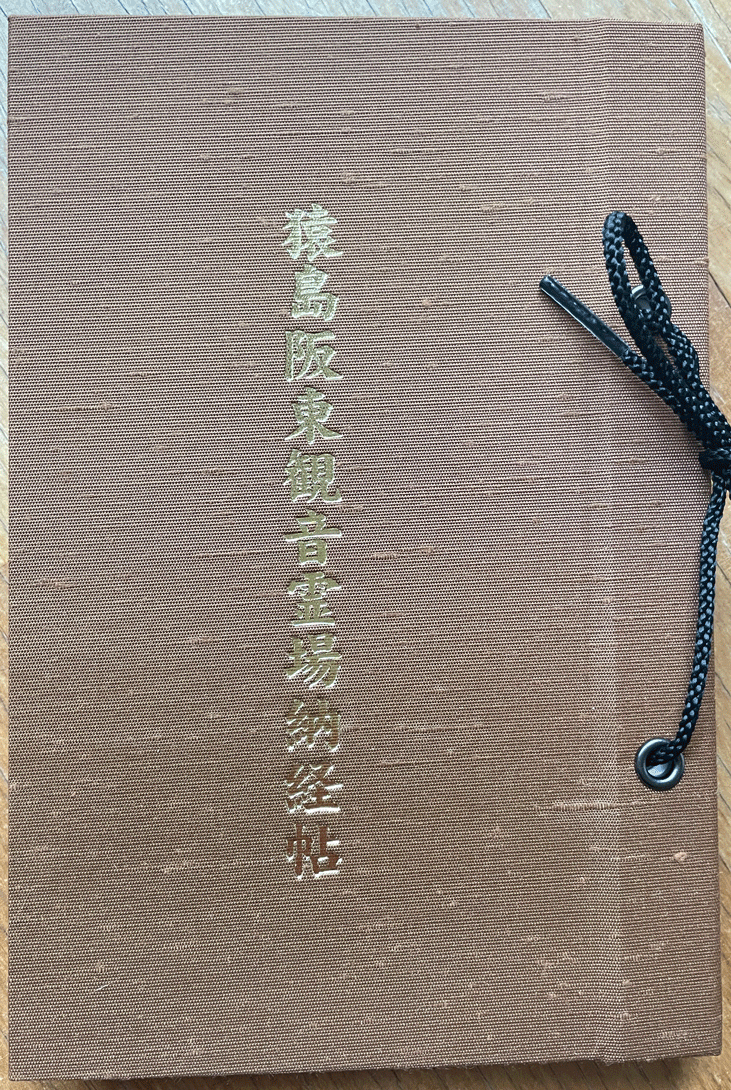 猿島阪東観音霊場納経帖